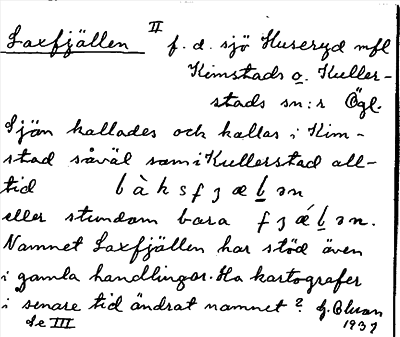 Laxfjällen II f. d. sjö Huseryd mfl
Kimstads o. Kuller-
stads sn:r Ögl.
Sjön kallades och kallas i Kim-
stad såväl som i Kullerstad all-
tid bàksfʒæḷən
eller stundom bara fʒǽḷən.
Namnet Laxfjällen har stöd även
i gamla handlingar. Ha kartografer
i senare tid ändrat namnet?
Se III 1937